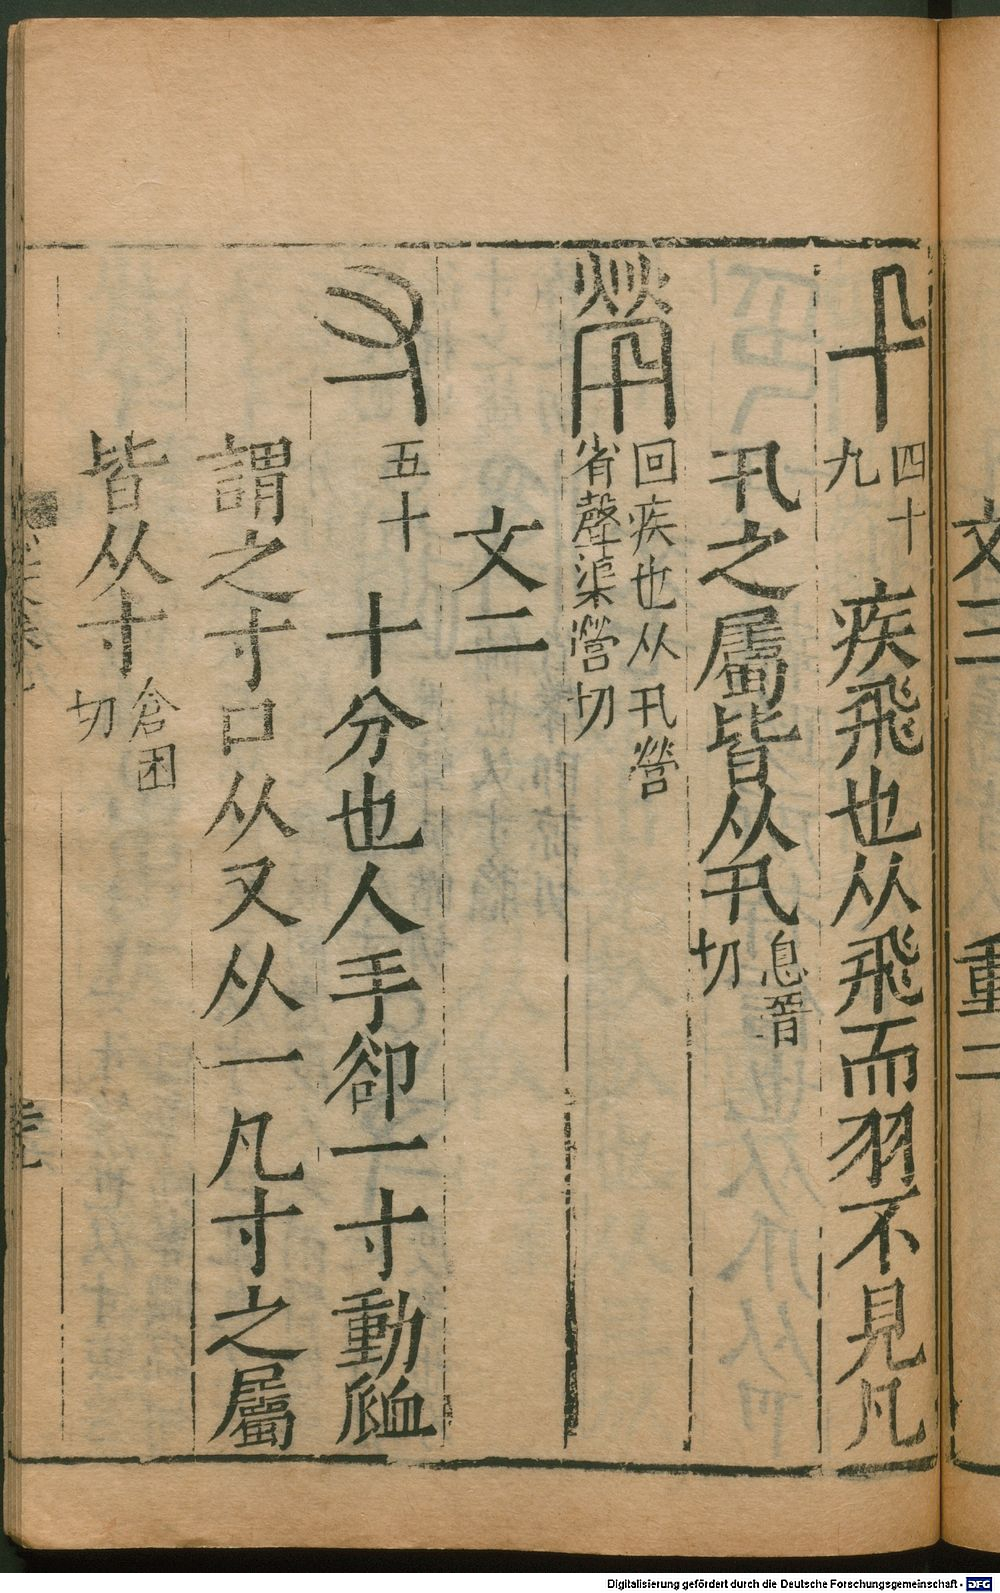 文三 重二
卂 四十九 疾飛也从飛而羽不見凡
卂之屬皆从卂 息晉切
煢 回疾也从卂營省聲渠營切
文二
寸 五十 十分也人手卻一寸動𧖴
謂之寸口从又从一凡寸之屬
皆从寸 倉困切
Digitalisierung gefördert durch die Deutsche Forschungsgemeinschaft - DFG